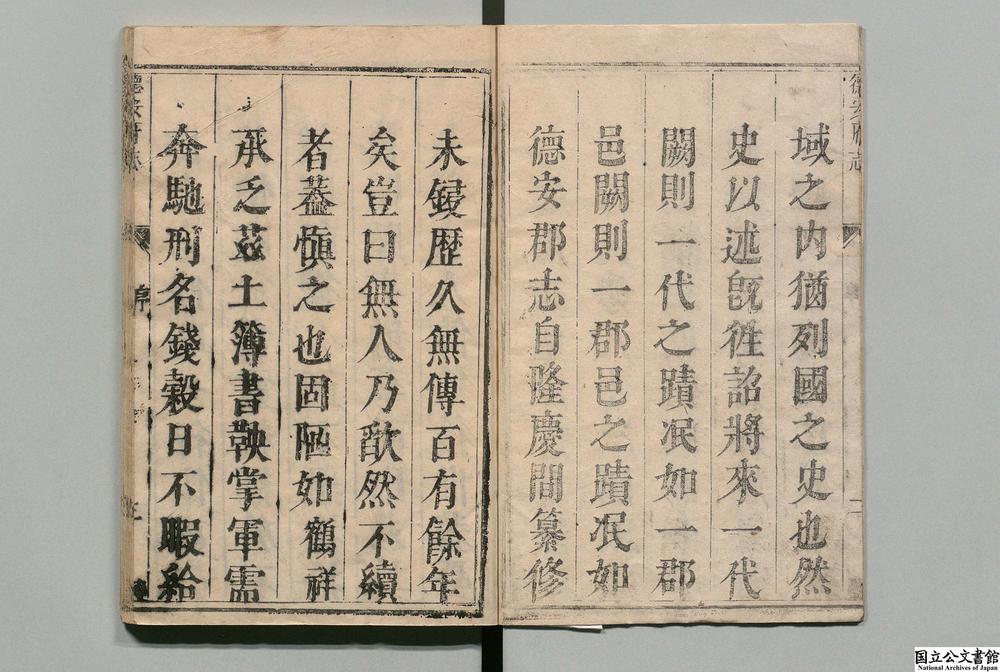 域之内猶列國之史也然
史以述旣徃詔將來一代
闕則一代之蹟泯如一郡
邑闕則一郡邑之蹟泯如
德安郡志自隆慶間纂修
未鋟歷久無傳百有餘年
矣豈曰無人乃歆然不續
者葢愼之也固陋如鶴祥
承乏茲土簿書鞅掌軍需
奔馳刑名錢穀日不暇給
德安府志
序
国立公文書館
National Archives of Japan